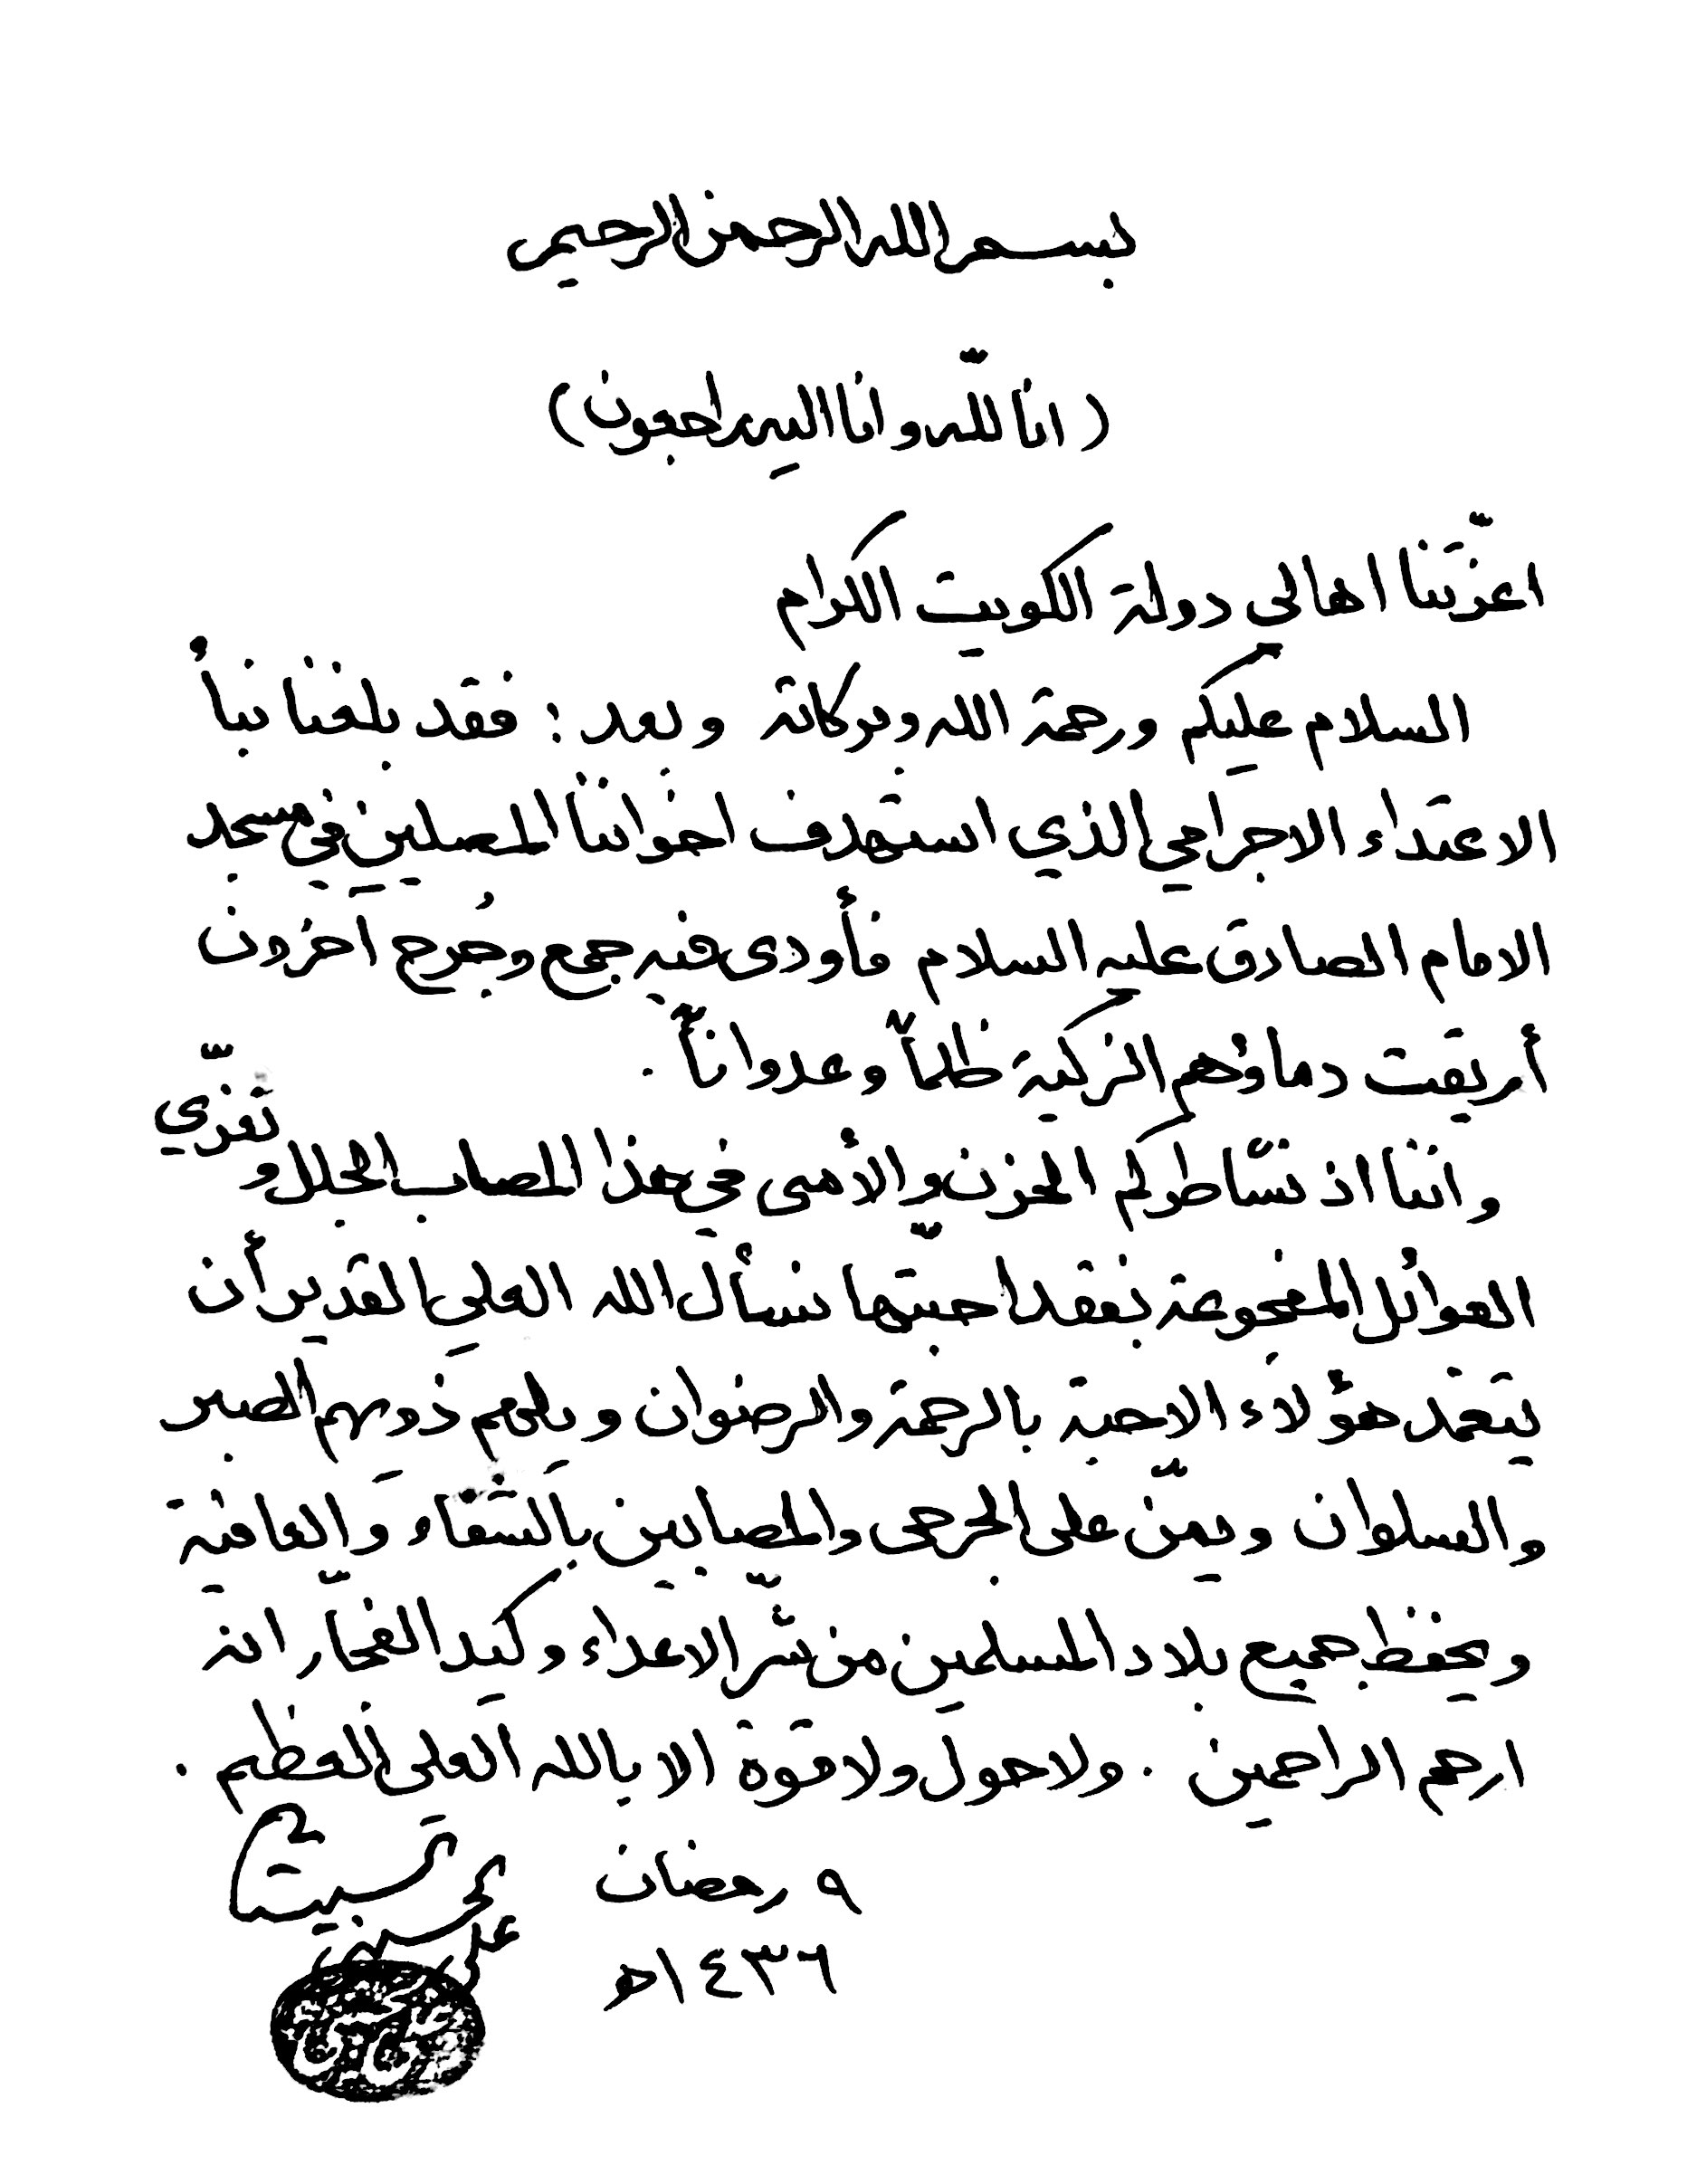 بسم الله الرحمن الرحيم
(انا لله وانا اليه راجعون)
اعزّتنا اهالي دولة الكويت الكرام
السلام عليكم ورحمة الله وبركاته وبعد : فقد بلغنا نبأ
الاعتداء الاجرامي الذي استهدف اخواننا المصلين في مسجد
الامام الصادق عليه السلام فأودى فيه جمع وجُرح آخرون
أريقت دماؤهم الزكية ظلماً وعدواناً .
واننا اذ نشاطركم الحزن والأسى في هذا المصاب الجلل و نعزّي
العوائل المفجوعة بفقد احبّتها نسأل الله العلي القدير أن
يتغمد هؤلاء الاحبة بالرحمة والرضوان ويلهم ذويهم الصبر
والسلوان ويمنّ على الجرحى والمصابين بالشفاء والعافية
ويحفظ جميع بلاد المسلمين من شرّ الاعداء وكيد الفجّار انه
ارحم الراحمين . ولا حول ولا قوة الا بالله العلي العظيم .
٩ رمضان
١٤٣٦ه